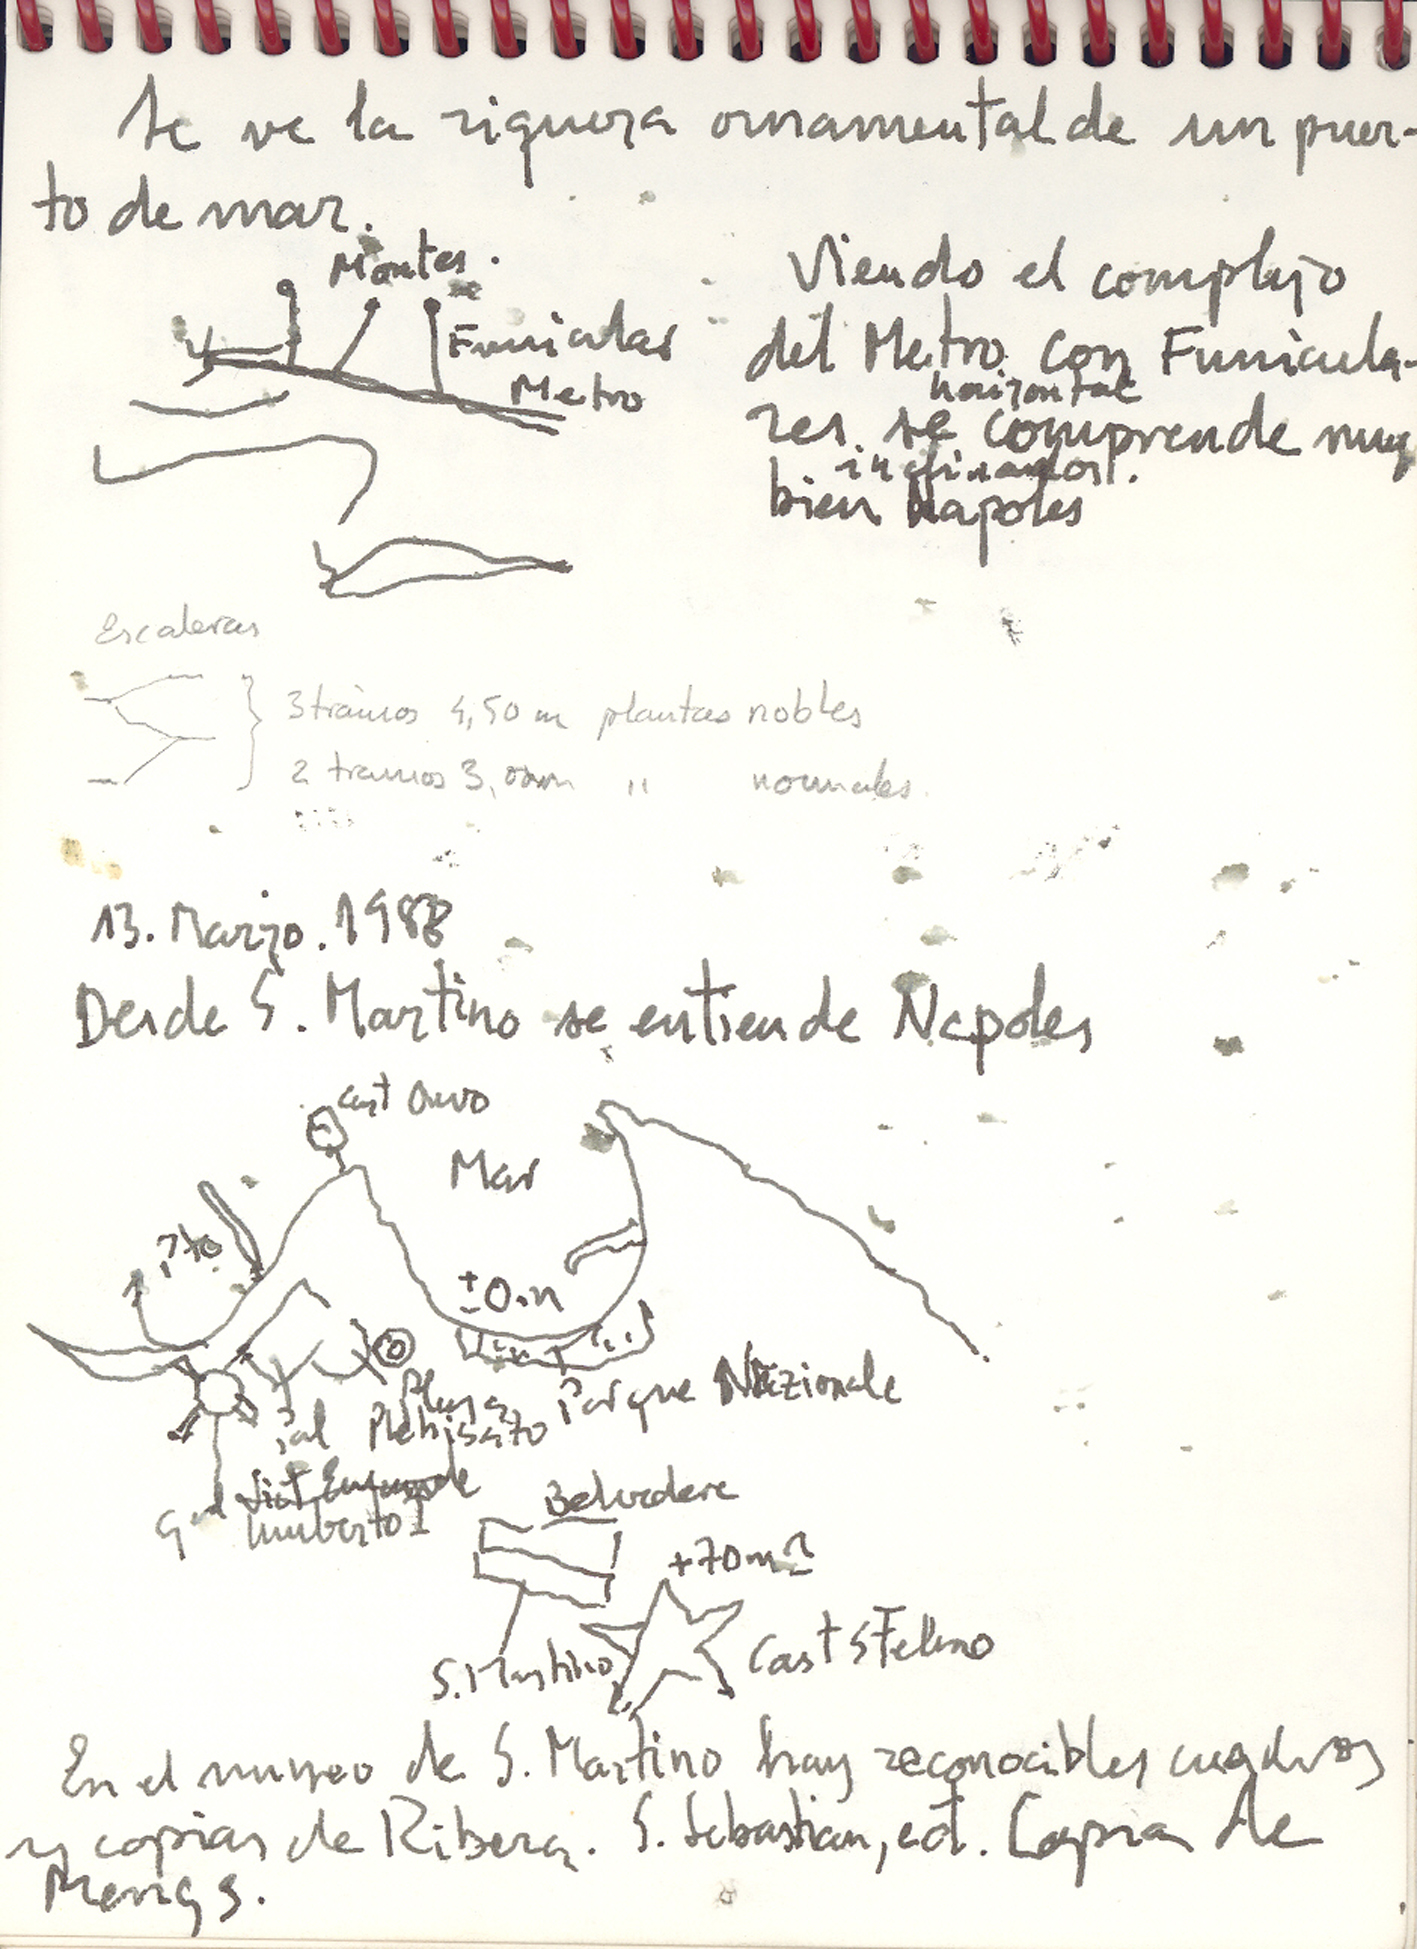 Se ve la riqueza ornamental de un puer-
to de mar.
Montes.
Funicular
Metro
Viendo el complejo
del Metro con Funicula-
horizontal
res se comprende muy
inclinados.
bien Napoles
Escaleras
3 tramos 4,50 m plantas nobles
2 tramos 3,00m " normales.
13. Marzo. 1988
Desde S. Martino se entiende Napoles
Cast Ouvo
Mar
Pto
±0.n
Parque Nazionale
Plaza
Pal Plebiscito
Gal Vict Emmanuele
Umberto I
Belvedere
+70m
S. Martino
Cast S Telmo
En el museo de S. Martino hay reconocibles cuadros
y copias de Ribera. S. Sebastian, ect. Copia de
Mengs.